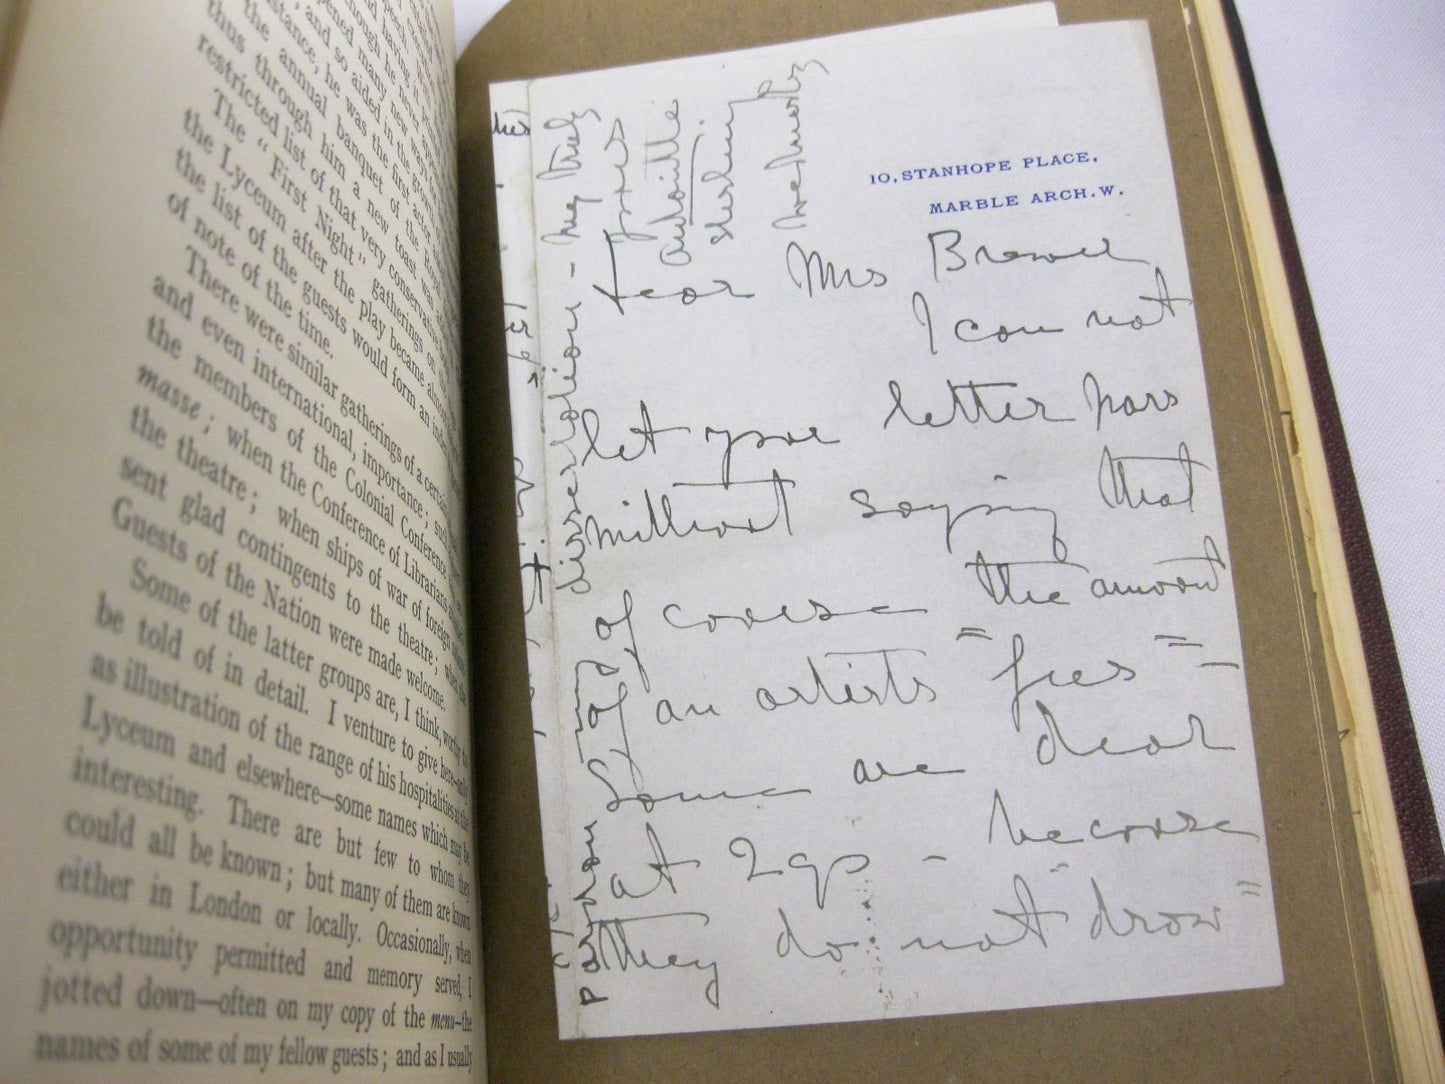 stance, he was the first actor
thus through him a new toast was
the annual banquet of the Royal
restricted list of that very conservative
The "First Night" gatherings on the
the Lyceum after the play became almost
the list of the guests would form an index
of note of the time.
There were similar gatherings of a certain
and even international, importance; such
the members of the Colonial Conference
masse; when the Conference of Librarians
the theatre; when ships of war of foreign
sent glad contingents to the theatre; when
Guests of the Nation were made welcome.
Some of the latter groups are, I think, worthy to
be told of in detail. I venture to give here—only
as illustration of the range of his hospitalities at the
Lyceum and elsewhere—some names which may be
interesting. There are but few to whom they
could all be known; but many of them are known
either in London or locally. Occasionally, when
opportunity permitted and memory served, I
jotted down—often on my copy of the menu—the
names of some of my fellow guests; and as I usually
10, STANHOPE PLACE,
MARBLE ARCH. W.
Dear Mrs Brower
I can not
let your letter pass
without saying that
of course the amount
of an artists "fees" –
Some are dear
at 2 gs – because
they do not "draw"
pardon my
dissertation –
yours
Antoinette
Sterling